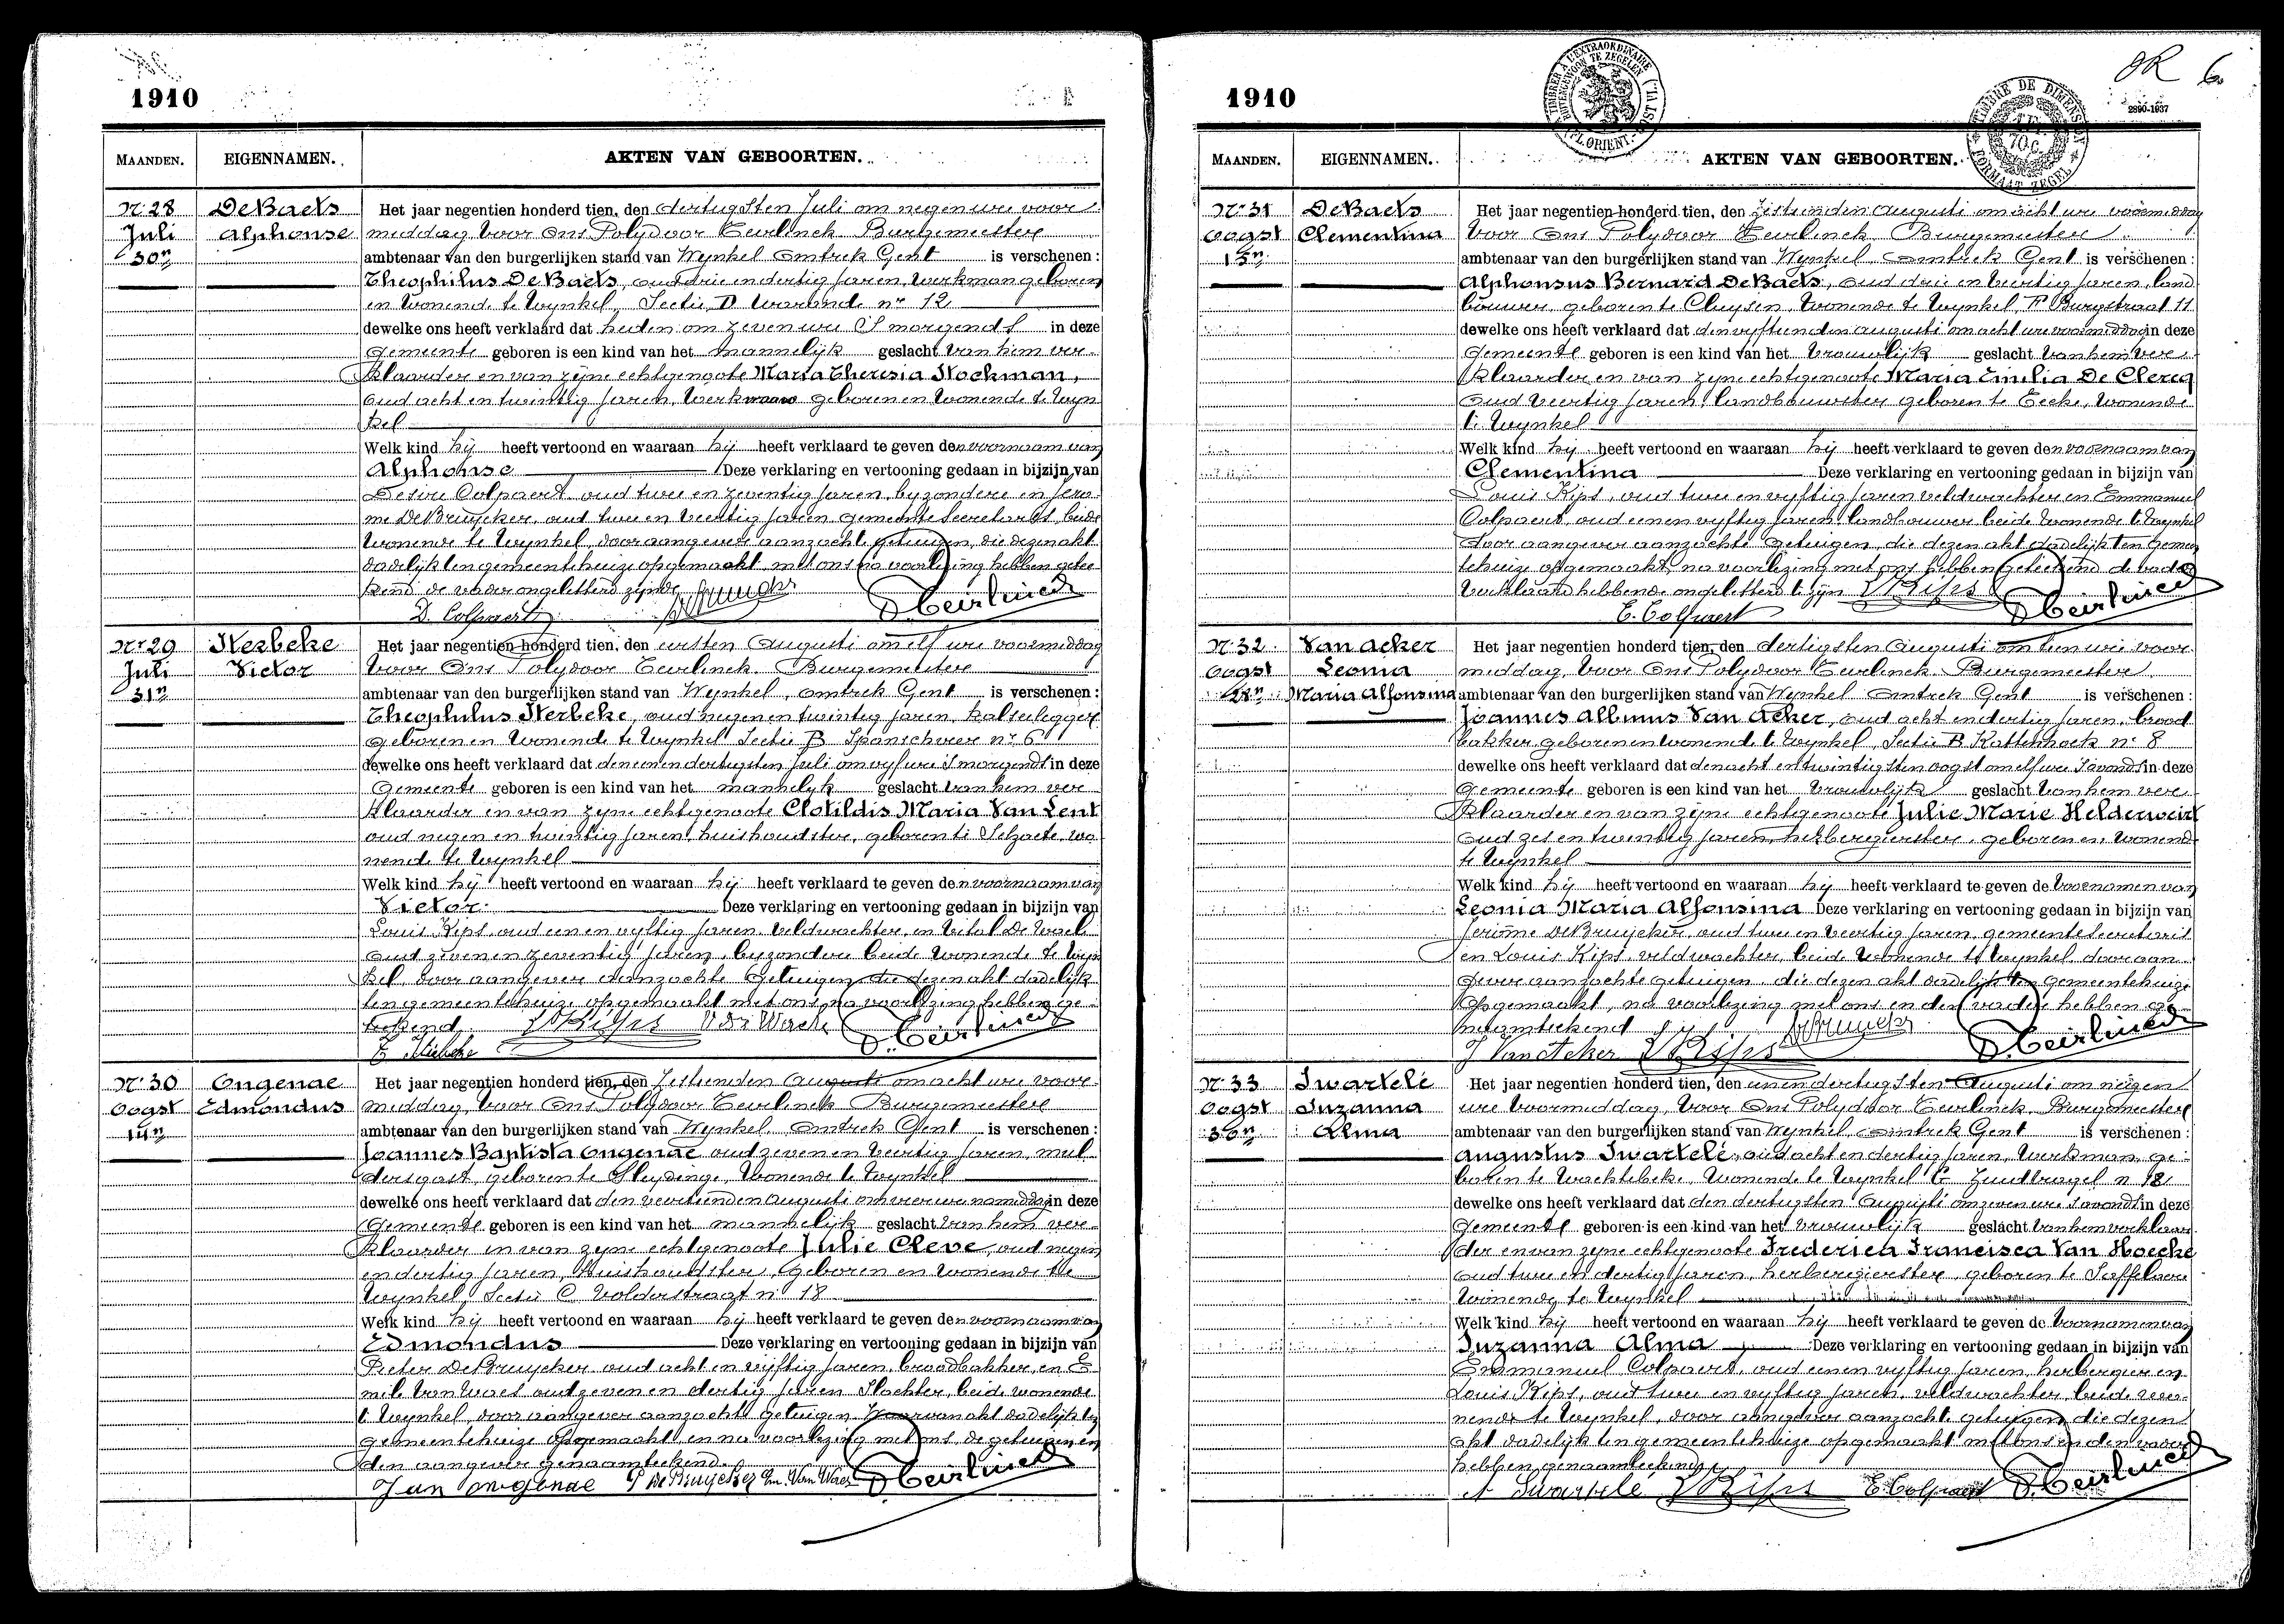 1910
MAANDEN. EIGENNAMEN. AKTEN VAN GEBOORTEN.
Nr 28 DeBaets Het jaar negentien honderd tien, den dertigsten Juli om negen ure voor
Juli Alphonse middag, voor Ons Polydoor Teirlinck Burgemeester
30n ambtenaar van den burgerlijken stand van Wynkel Omtrek Gent is verschenen :
Theophilus DeBaets, oud drie en dertig jaren, werkman geboren
en wonende te Wynkel, Sectie D Warande nr 12
dewelke ons heeft verklaard dat heden om zeven ure 's morgends in deze
Gemeente geboren is een kind van het mannelijk geslacht van hem ver-
klaarder en van zyne echtgenoote Maria Theresia Stockman,
oud acht en twintig jaren, werkvrouw geboren en wonende te Wyn
kel
Welk kind hij heeft vertoond en waaraan hij heeft verklaard te geven den voornaam van
Alphonse Deze verklaring en vertooning gedaan in bijzijn van
Desire Colpaert oud twee en zeventig jaren, byzondere en Jero-
me DeBruycker, oud twee en veertig jaren, gemeente Secretaris, beide
wonende te Wynkel, door aangever aanzocht getuigen, die dezen akt
dadelijk ten gemeentehuize opgemaakt met ons na voorlezing hebben getee-
kend de vader ongeletterd zijnde
D. Colpaert
Nr 29 Nerbeke Het jaar negentien honderd tien, den eersten Augusti om elf ure voormiddag
Juli Victor voor Ons Polydoor Teirlinck Burgemeester
31n ambtenaar van den burgerlijken stand van Wynkel, omtrek Gent is verschenen :
Theophilus Nerbeke, oud negen en twintig jaren, kalseilegger
geboren en wonende te Wynkel Sectie B Spanschveer nr 6
dewelke ons heeft verklaard dat den een en dertigsten Juli om vyf ure 's morgends in deze
Gemeente geboren is een kind van het mannelyk geslacht van hem ver
klaarder en van zyne echtgenoote Clotildis Maria Van Lent
oud negen en twintig jaren, huishoudster, geboren te Selzaete, wo
nende te Wynkel
Welk kind hij heeft vertoond en waaraan hij heeft verklaard te geven den voornaam van
Victor Deze verklaring en vertooning gedaan in bijzijn van
Louis Kips, oud een en vyftig jaren veldwachter, en Vital De Waele
oud zeven en zeventig jaren, byzondere beide wonende te Wyn
kel, door aangever aanzochte getuigen die dezen akt dadelijk
ten gemeentehuize opgemaakt met ons na voorlezing hebben ge-
teekend.
Nr 30 Ongenae Het jaar negentien honderd tien, den zestienden Augusti om acht ure voor
Oogst Edmondus middag, voor Ons Polydoor Teirlinck Burgemeester
14n ambtenaar van den burgerlijken stand van Wynkel, Omtrek Gent is verschenen :
Joannes Baptista Ongenae oud zeven en veertig jaren, mul
dersgast, geboren te Sleydinge, wonende te Wynkel
dewelke ons heeft verklaard dat den veertienden Augusti om vier ure namiddag in deze
Gemeente geboren is een kind van het mannelijk geslacht van hem ver-
klaarder en van zyne echtgenoote Julie Cleve, oud negen
en dertig jaren, Huishoudster, Geboren en wonende te
Wynkel, Sectie C Volderstraat n 18
Welk kind hij heeft vertoond en waaraan hij heeft verklaard te geven den voornaam van
Edmondus Deze verklaring en vertooning gedaan in bijzijn van
Pieter DeBruycker oud acht en vijftig jaren, broodbakker, en E-
mile Van Waes oud zeven en dertig jaren Slachter, beide wonende
te Wynkel, door aangever aanzocht getuigen. Waarvan akt dadelijk ten
gemeentehuize opgemaakt en na voorlezing met ons, de getuigen en
den aangever genaamteekend.
Jan ongenae P De Bruycker Em. Van Waes P. Teirlinck
1910
OR 6
2890-1937
TIMBRE A L'EXTRAORDINAIRE
BUITENGEWOON TE ZEGELEN
FL. ORIENT.
TIMBRE DE DIMENSION
70 c.
FORMAAT ZEGEL
MAANDEN. EIGENNAMEN. AKTEN VAN GEBOORTEN.
Nr 31 DeBaets Het jaar negentien honderd tien, den zestienden Augusti om acht ure voormiddag
Oogst Clementina voor Ons Polydoor Teirlinck Burgemeester
15n ambtenaar van den burgerlijken stand van Wynkel Omtrek Gent is verschenen :
Alphonsus Bernard DeBaets, oud drie en veertig jaren, land
bouwer, geboren te Cluysen, wonende te Wynkel, F Burgstraat 11
dewelke ons heeft verklaard dat den vyftienden augusti om acht ure voormiddag in deze
Gemeente geboren is een kind van het vrouwlijk geslacht van hem ver-
klaarder en van zyne echtgenoote Maria Emilia De Clercq
oud veertig jaren, landbouwster geboren te Eecke, wonende
te Wynkel
Welk kind hij heeft vertoond en waaraan hij heeft verklaard te geven den voornaam van
Clementina Deze verklaring en vertooning gedaan in bijzijn van
Louis Kips, oud twee en vyftig jaren veldwachter en Emmanuel
Colpaert, oud een en vyftig jaren, landbouwer beide wonende te Wynkel
door aangever aanzochte getuigen, die dezen akt dadelijk ten gemeen
tehuize opgemaakt, na voorlezing met ons hebben geteekend de vader
verklaard hebbende ongeletterd te zijn
E. Colpaert
Nr 32 Van Acker Het jaar negentien honderd tien, den dertigsten Augusti om tien ure voor
Oogst Leonia middag, voor Ons Polydoor Teirlinck Burgemeester
28n Maria Alfonsina ambtenaar van den burgerlijken stand van Wynkel Omtrek Gent is verschenen :
Joannes Albinus Van Acker, oud acht en dertig jaren, brood
bakker, geboren en wonende te Wynkel, Sectie B Kattenhoek nr 8
dewelke ons heeft verklaard dat den acht en twintigsten oogst om elf ure 's avonds in deze
Gemeente geboren is een kind van het vrouwlijk geslacht van hem ver-
klaarder en van zyne echtgenoote Julie Marie Helderweirt
oud zes en twintig jaren, herbergierster, geboren en wonende
te Wynkel
Welk kind hij heeft vertoond en waaraan hij heeft verklaard te geven de voornamen van
Leonia Maria Alfonsina Deze verklaring en vertooning gedaan in bijzijn van
Jerôme DeBruycker, oud twee en veertig jaren, gemeentesecretaris
en Louis Kips, veldwachter, beide wonende te Wynkel door aan-
gever aanzochte getuigen, die dezen akt dadelijk ten gemeentehuize
opgemaakt, na voorlezing met ons en den vader hebben ge-
naamteekend
J Van Acker
Nr 33 Swartelé Het jaar negentien honderd tien, den eenen dertigsten Augusti om negen
Oogst Suzanna ure voormiddag, voor Ons Polydoor Teirlinck Burgemeester
30n Alma ambtenaar van den burgerlijken stand van Wynkel Omtrek Gent is verschenen :
Augustus Swartelé, oud acht en dertig jaren, werkman, ge-
boren te Wachtebeke, wonende te Wynkel C Zandtragel n 18
dewelke ons heeft verklaard dat den dertigsten Augusti om zeven ure 's avonds in deze
Gemeente geboren is een kind van het vrouwlijk geslacht van hem verklaar
der en van zyne echtgenoote Frederica Francisca Van Hoecke
oud twee en dertig jaren, herbergierster, geboren te Saffelaere
wonende te Wynkel
Welk kind hij heeft vertoond en waaraan hij heeft verklaard te geven de voornamen van
Suzanna Alma Deze verklaring en vertooning gedaan in bijzijn van
Emmanuel Colpaert, oud een en vyftig jaren, herbergier en
Louis Kips, oud twee en vyftig jaren, veldwachter, beide woo-
nende te Wynkel, door aangever aanzocht getuigen, die dezen
akt dadelijk ten gemeentehuize opgemaakt met ons en den vader
hebben genaamteekend
A Swartelé L Kips E Colpaert P. Teirlinck